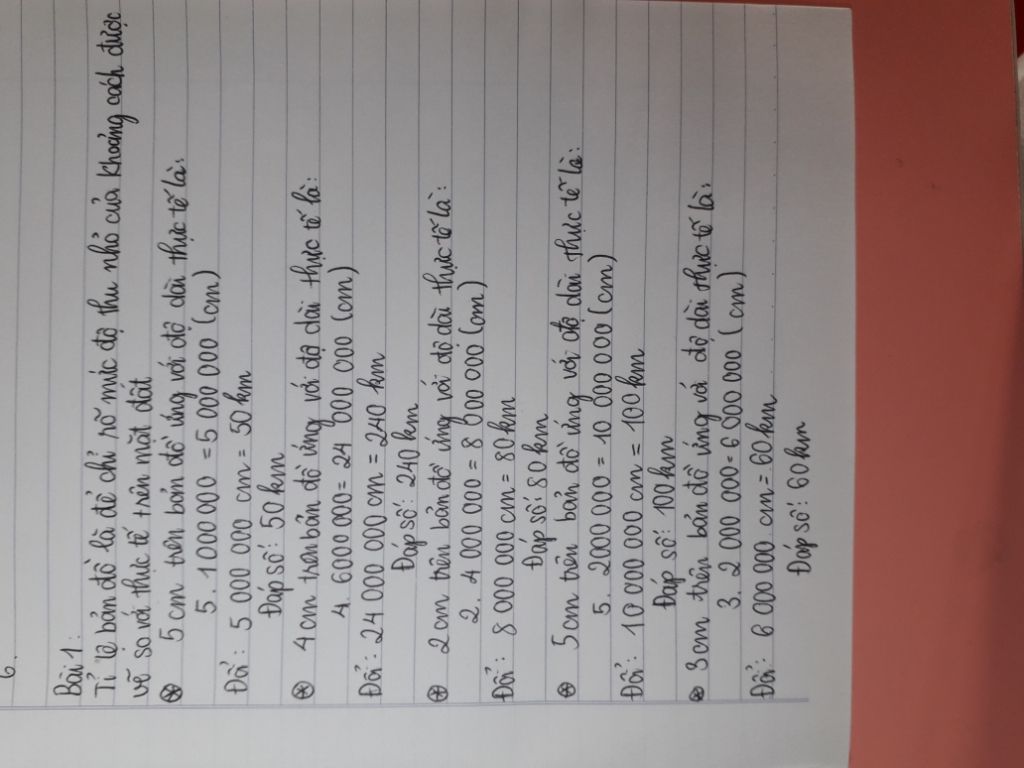 6.
Bài 1:
Tỉ lệ bản đồ là để chỉ rõ mức độ thu nhỏ của khoảng cách được
vẽ so với thực tế trên mặt đất
5 cm trên bản đồ ứng với độ dài thực tế là:
5. 1000 000 = 5 000 000 (cm)
Đổi: 5 000 000 cm = 50 km
Đáp số: 50 km
4 cm trên bản đồ ứng với độ dài thực tế là:
4. 6000 000 = 24 000 000 (cm)
Đổi: 24 000 000 cm = 240 km
Đáp số: 240 km
2 cm trên bản đồ ứng với độ dài thực tế là:
2. 4 000 000 = 8 000 000 (cm)
Đổi: 8 000 000 cm = 80 km
Đáp số: 80 km
5 cm trên bản đồ ứng với độ dài thực tế là:
5. 2000 000 = 10 000 000 (cm)
Đổi: 10 000 000 cm = 100 km
Đáp số: 100 km
3 cm trên bản đồ ứng vá độ dài thực tế là:
3. 2 000 000 = 6 000 000 (cm)
Đổi: 6 000 000 cm = 60 km
Đáp số: 60 km